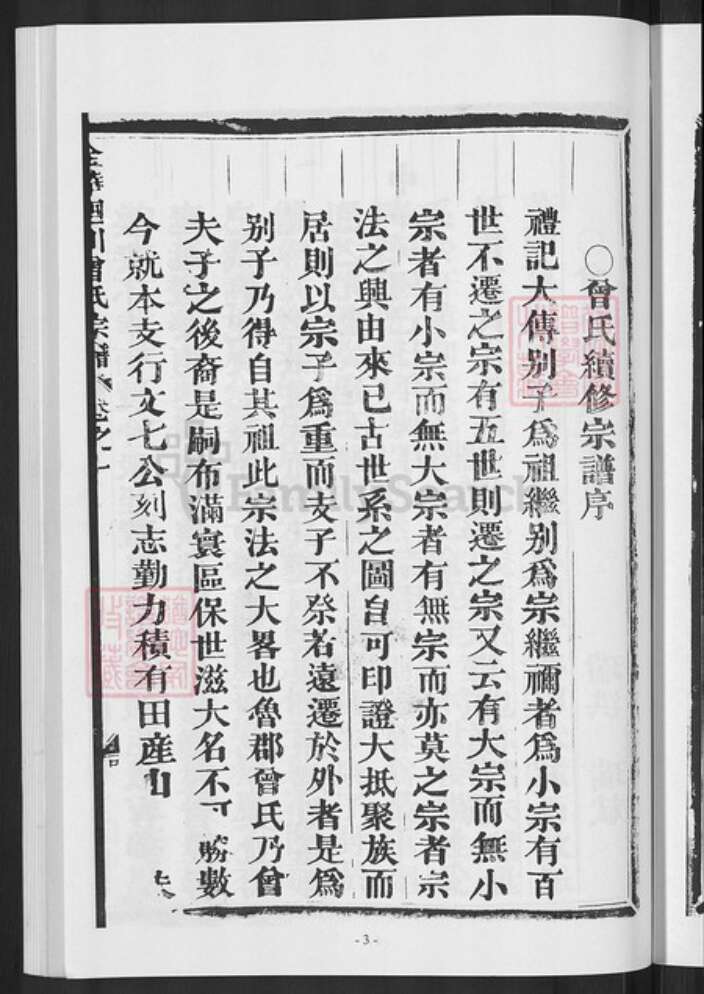 ○曾氏續修宗譜序
禮記大傳别子爲祖繼别爲宗繼禰者爲小宗有百
世不遷之宗有五世則遷之宗又云有大宗而無小
宗者有小宗而無大宗者有無宗而亦莫之宗者宗
法之興由來已古世系之圖自可印證大抵聚族而
居則以宗子爲重而支子不祭若遠遷於外者是爲
别子乃得自其祖此宗法之大畧也魯郡曾氏乃曾
夫子之後裔是嗣布滿寰區保世滋大名不可勝數
今就本支行文七公刻志勤力積有田産山
川曾氏宗譜 卷之一
FamilySearch
- 3 -